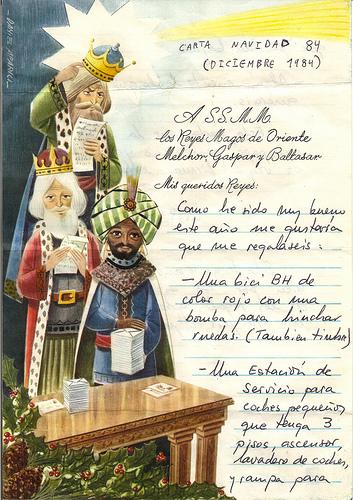 CARTA NAVIDAD 84
(DICIEMBRE 1984)
A SS.MM.
los Reyes Magos de Oriente
Melchor, Gaspar y Baltasar
Mis queridos Reyes:
Como he sido muy bueno
este año me gustaria
que me regalaseis:
- Una bici BH de
color rojo con una
bomba para hinchar
ruedas. (Tambien timbre)
- Una Estación de
Servicio para
coches pequeños,
que tenga 3
pisos, ascensor,
lavadero de coches,
y rampa para